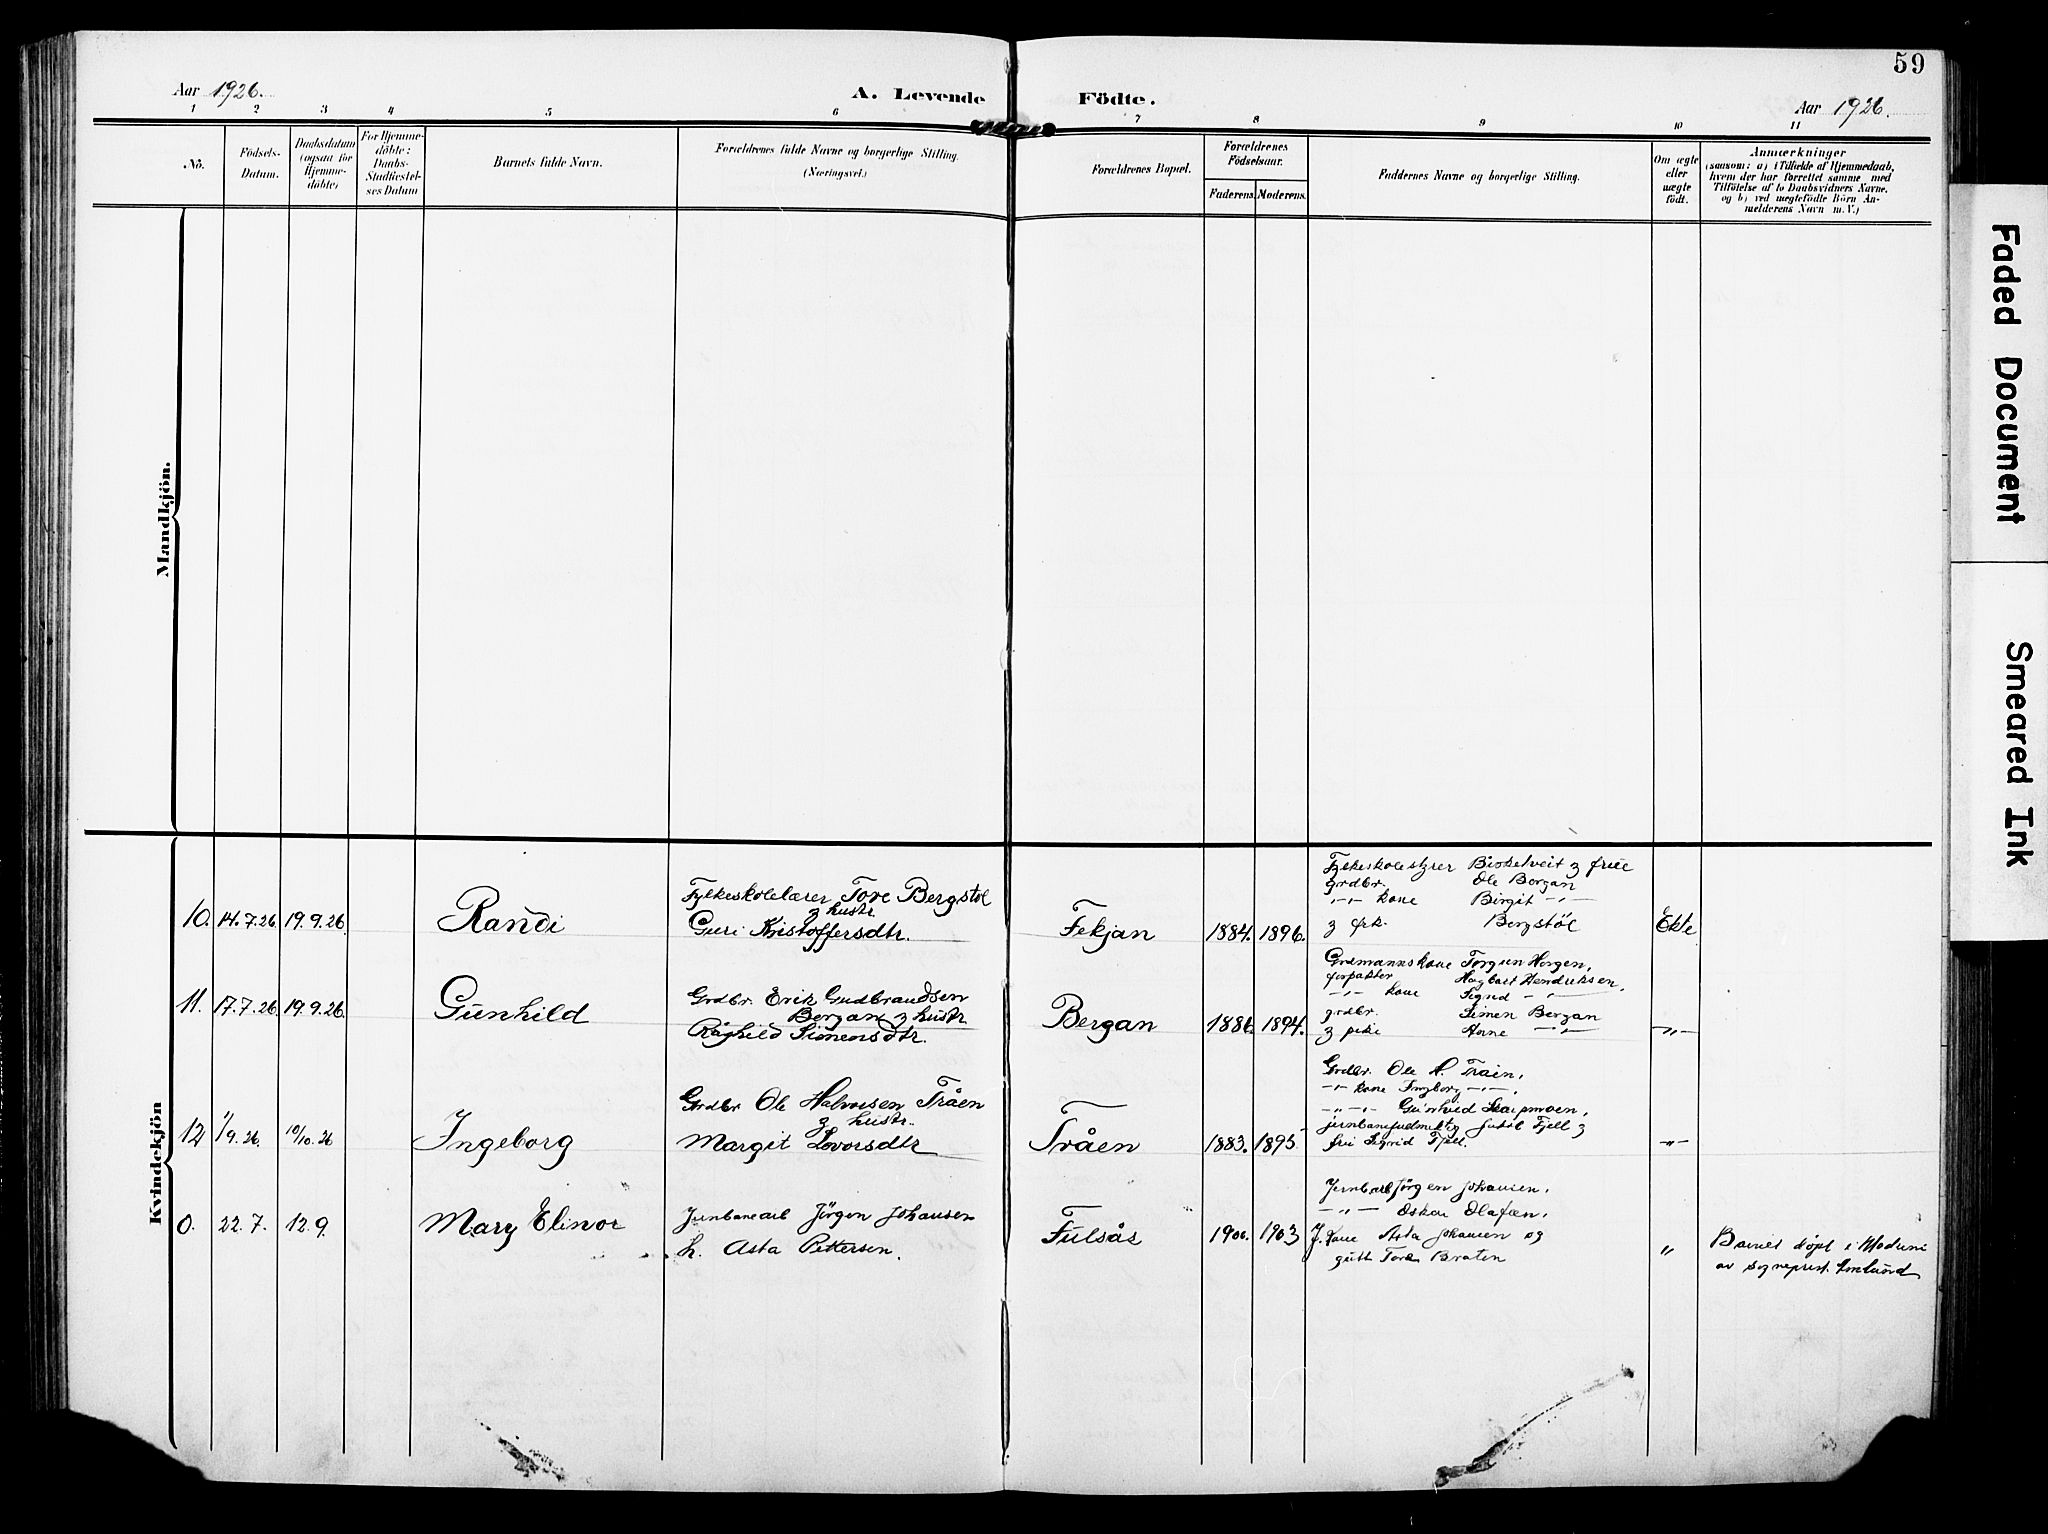 59
Aar 1926.
A. Levende Födte.
Aar 1926.
1 2 3 4 5 6 7 8 9 10 11
Nö.
Födsels-
Datum.
Daabsdatum
(ogsaa for
Hjemme-
döbte)
For Hjemme-
döbte:
Daabs-
Stadfæstel-
ses Datum
Barnets fulde Navn.
Forældrenes fulde Navne og borgerlige Stilling.
(Næringsvei.)
Forældrenes Bopæl.
Forældrenes
Födselsaar.
Faderens. Moderens.
Faddernes Navne og borgerlige Stilling.
Om ægte
eller
uægte
födt.
Anmærkninger
(saasom: a) i Tilfælde af Hjemmedaab,
hvem der har forrettet samme med
Tilföielse af to Daabsvidners Navne.
og b) ved uægtefödte Börn An-
melderens Navn m. V.)
Mandkjön.
Kvindekjön
10. 14.7.26 19.9.26.
Randi
Fylkeskolelærer Tore Bergstöl
& hustr
Guri Kristoffersdtr.
Fekjan
1884. 1896.
Fylkeskolestyrer Birkelveit & frue
grdbr. Ole Bergan
-"- kone Birgit -"-
& frk. Bergstöl
Ekte
11. 17.7.26 19.9.26
Gunhild
Grdbr. Erik Gudbrandsen
Bergan & hustr
Råghild Simensdtr.
Bergan
1886. 1894.
Grdmannskone Torgun Horgen,
forpakter Hagbart Hendriksen,
-"- kone Sigrid -"-
grdbr. Simen Bergan
& pike Anne -"-
-"-
12 1/9.26. 10/10.26
Ingeborg
Grdbr Ole Halvorsen Tråen
& hustr.
Margit Lovorsdtr
Tråen
1883. 1895.
Grdbr. Ole H. Tråen,
-"- kone Ingborg -"-,
-"-"- Gunhild Skarpmoen,
jernbanefuldmektig Fjell &
fru Sigrid Fjell.
-"-
0. 22.7. 12.9.
Mary Elinor
Jernbanearb Jörgen Johansen
h. Asta Pettersen.
Fulsås
1900. 1903
Jernbarb Jörgen Johansen.
-"- Oskar Olafsen,
J. kone Asta Johansen og
gutt Tore Bråten
"
Barnet döpt i Modum
av sogneprest
Faded Document
Smeared Ink